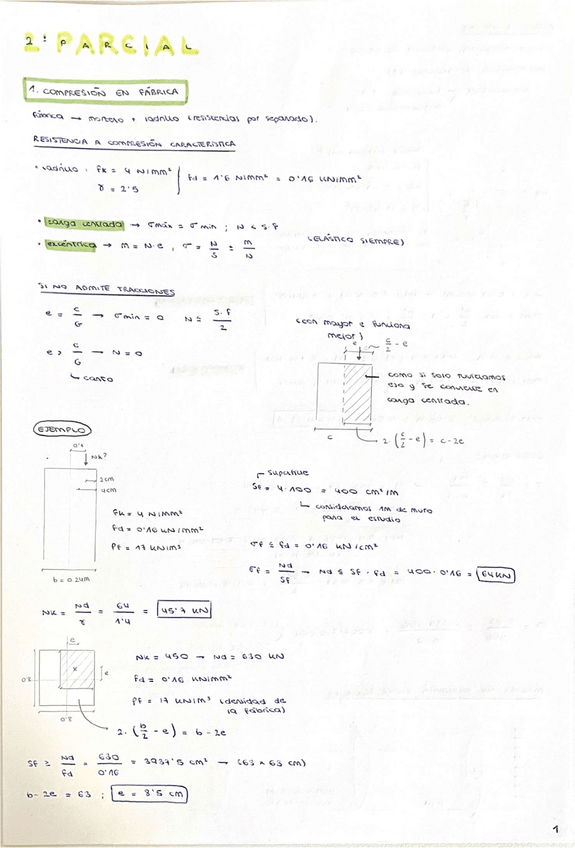 2º PARCIAL
1. COMPRESIÓN EN FÁBRICA
Fábrica → mortero + ladrillo (resistencias por separado).
RESISTENCIA A COMPRESIÓN CARACTERÍSTICA
· Ladrillo : fk = 4 N/mm² | fd = 1'6 N/mm² = 0'16 KN/mm²
γ = 2'5
· carga centrada → σmáx = σmin ; N ≤ S·f
· excéntrica → M = N·e , σ = N/S ± M/N (ELÁSTICO SIEMPRE)
SI NO ADMITE TRACCIONES
e = c/6 → σmin = 0 N ≤ S·f/2
e > c/6 → N = 0
↳ canto
(con mayor e funciona mejor)
e
c/2 - e
como si solo tuviéramos
eso y se convierte en
carga centrada.
c
2·(c/2 - e) = c - 2e
EJEMPLO
Nk?
2cm
4cm
b = 0.24m
fk = 4 N/mm²
fd = 0'16 KN/mm²
Pf = 17 KN/m³
superficie
Sf = 4·100 = 400 cm²/m
↳ consideramos 1m de muro
para el estudio
σf ≤ fd = 0'16 KN/cm²
σf = Nd/Sf → Nd ≤ Sf · fd = 400 · 0'16 = 64KN
Nk = Nd/γ = 64/1'4 = 45'7 KN
e
x
e
0.8
0.8
Nk = 450 → Nd = 630 KN
fd = 0'16 KN/mm²
Pf = 17 KN/m³ (densidad de
la fábrica)
2·(b/2 - e) = b - 2e
Sf ≥ Nd/fd = 630/0'16 = 3937'5 cm² → (63 × 63 cm)
b - 2e = 63 ; e = 8'5 cm
1